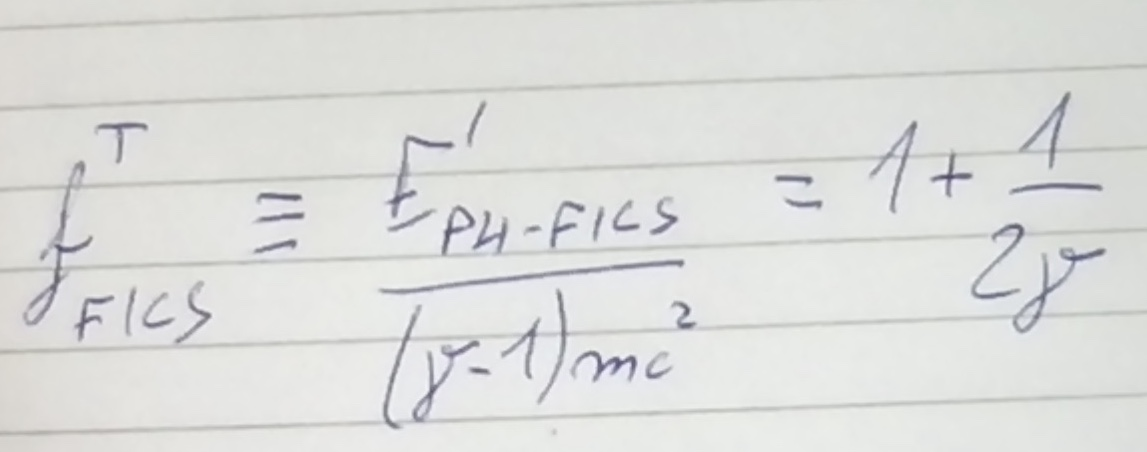 f^T_{FICS} ≡ E'_{PH-FICS} / (γ-1)mc² = 1 + 1/2γ